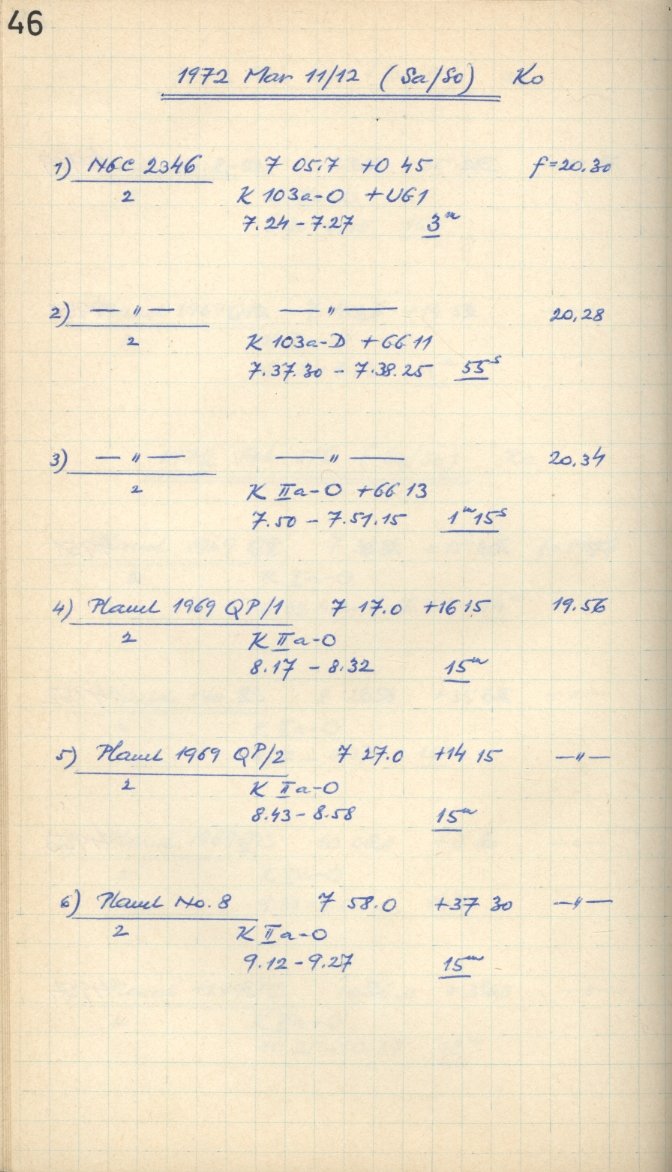 46
1972 Mar 11/12 (Sa/So) Ko
1) NGC 2346 7 05.7 +0 45 f=20.30
2 K 103a-O +UG1
7.24 - 7.27 3ᵐ
2) — 〃 — — 〃 — 20.28
2 K 103a-D +GG11
7.37.30 - 7.38.25 55ˢ
3) — 〃 — — 〃 — 20.34
2 K IIa-O +GG13
7.50 - 7.51.15 1ᵐ15ˢ
4) Planet 1969 QP/1 7 17.0 +16 15 19.56
2 K IIa-O
8.17 - 8.32 15ᵐ
5) Planet 1969 QP/2 7 27.0 +14 15 — 〃 —
2 K IIa-O
8.43 - 8.58 15ᵐ
6) Planet No. 8 7 58.0 +37 30 — 〃 —
2 K IIa-O
9.12 - 9.27 15ᵐ